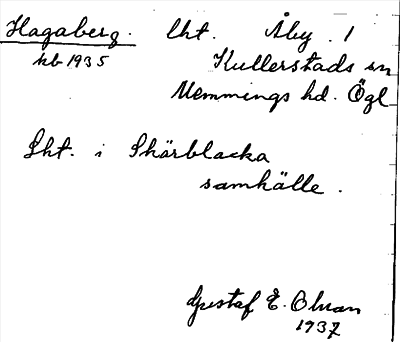 Hagaberg. lht. Åby 1
kb 1935 Kullerstads sn
Memmings hd. Ögl
Lht. i Skärblacka
samhälle.
Gustaf E. Olsson
1937